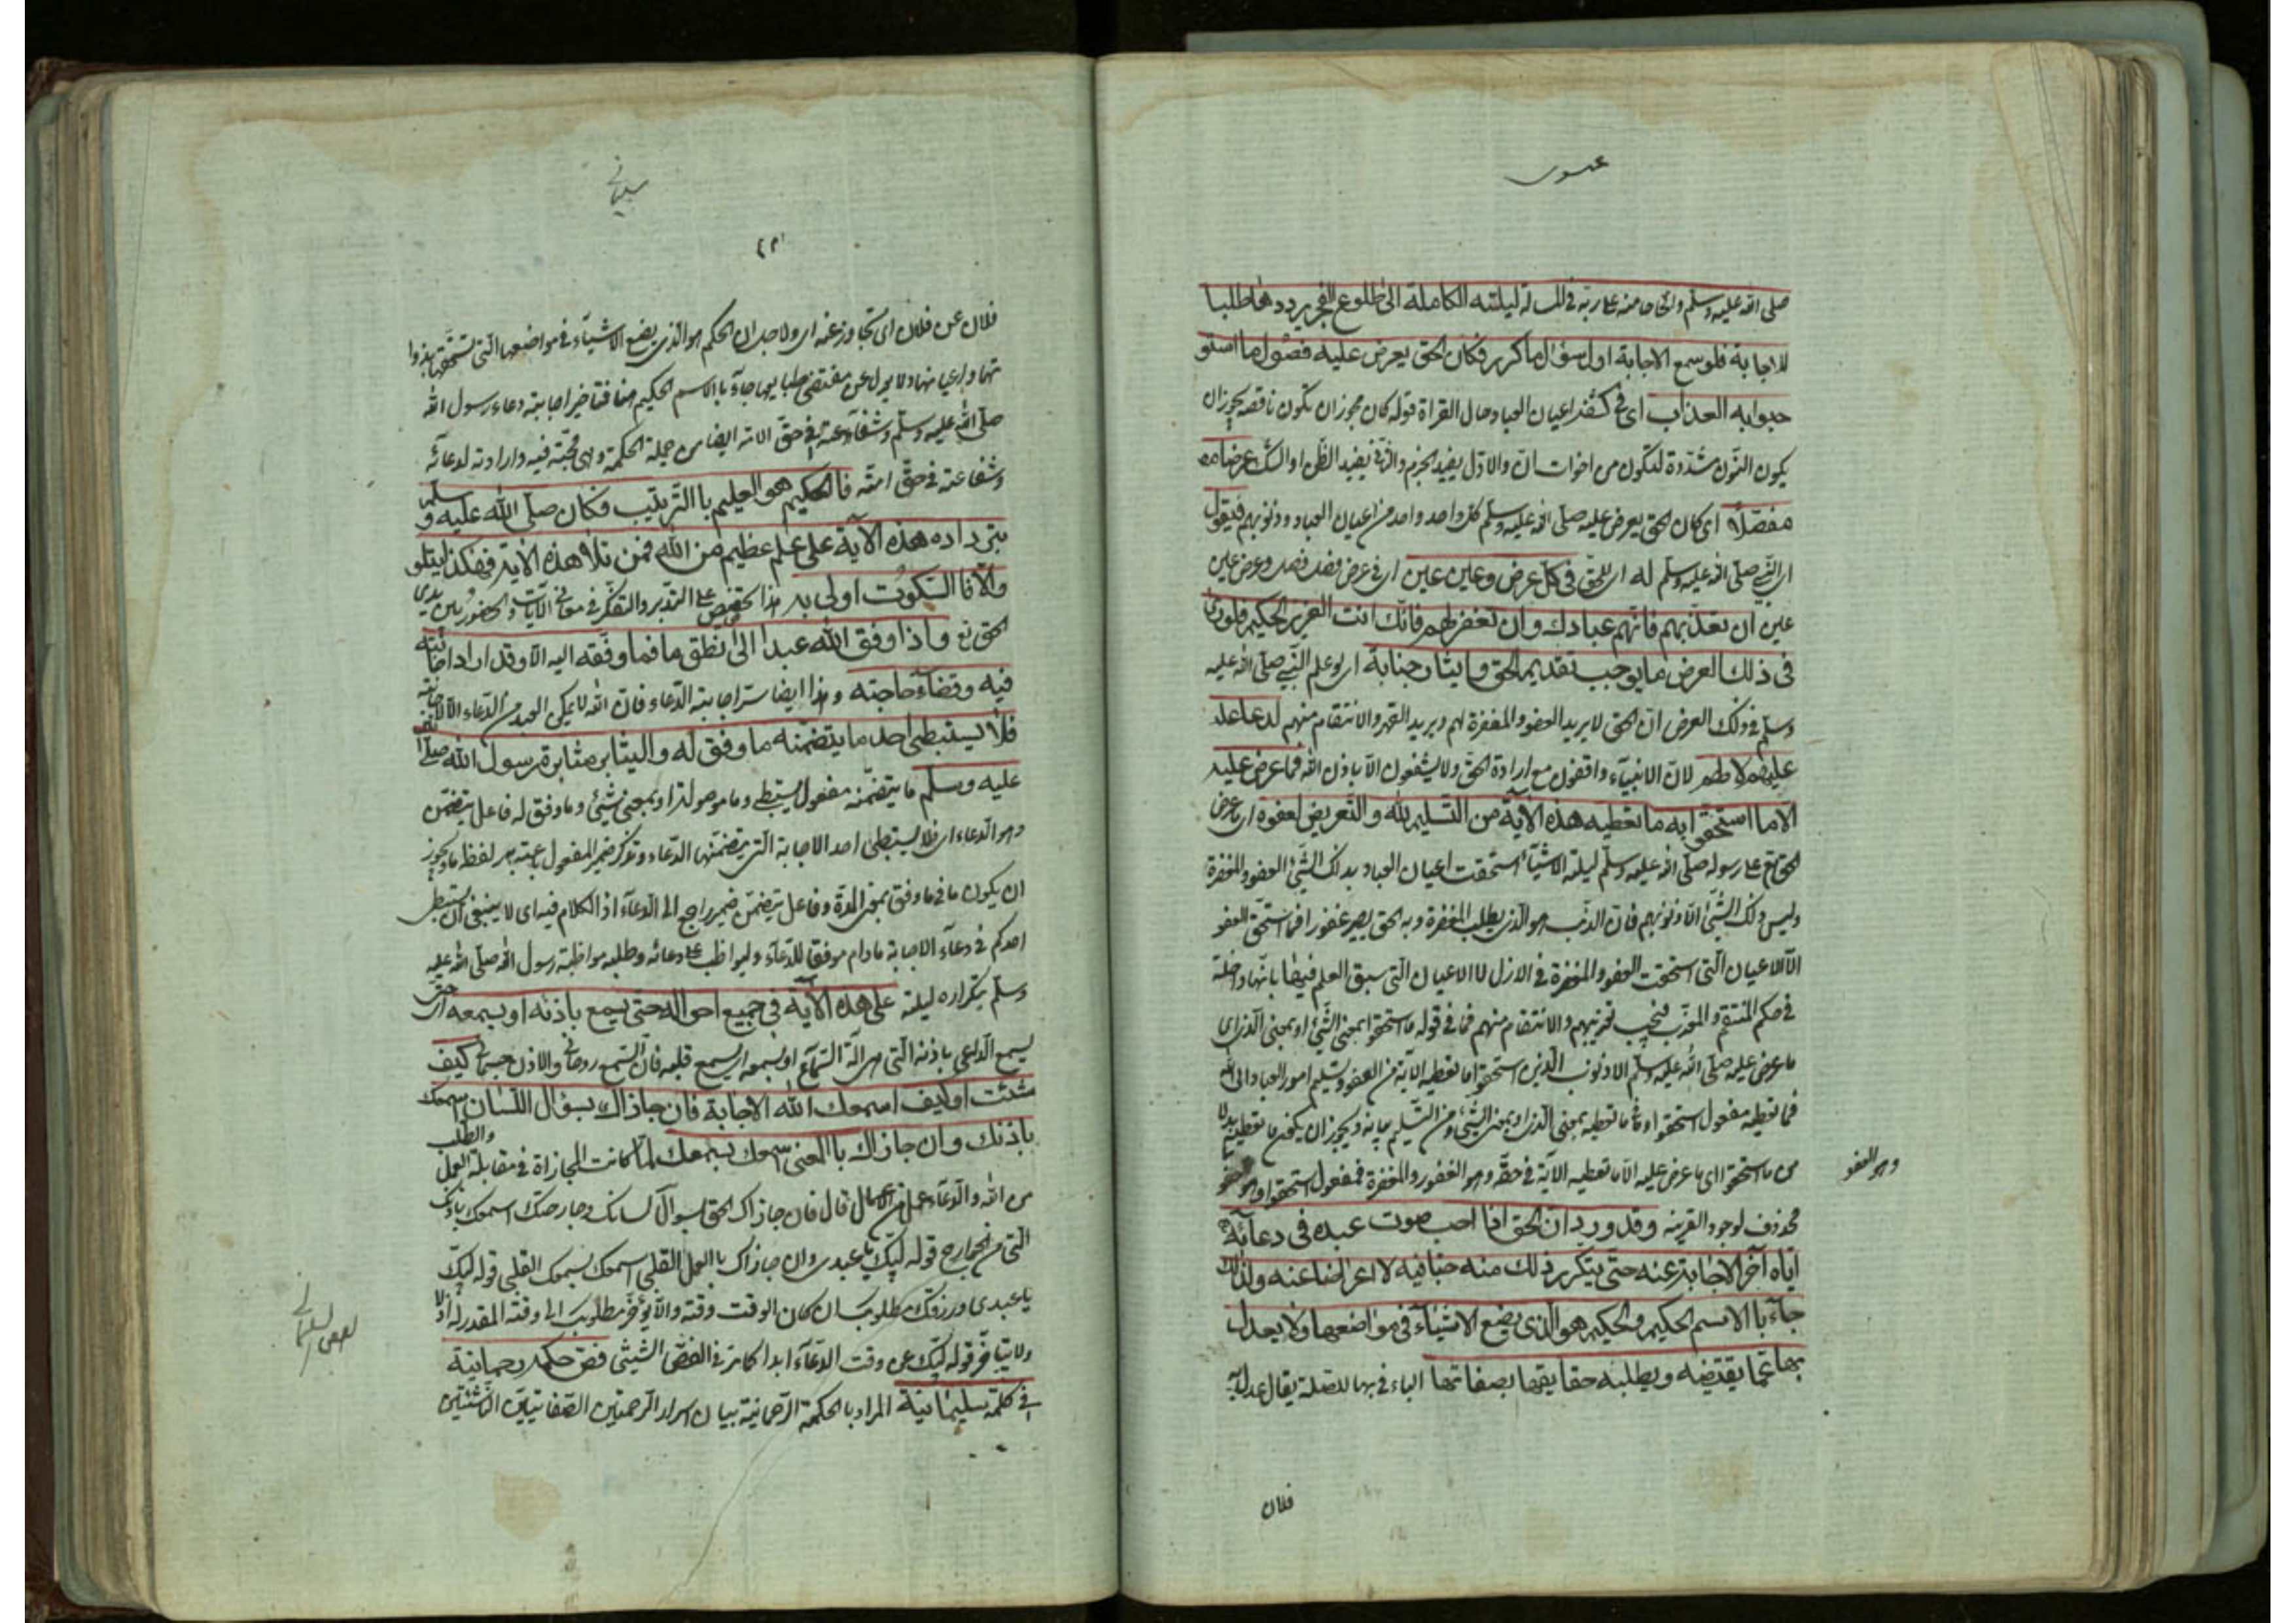 عيسوى
صلى الله عليه وسلم والحاحا منه على ربه فى المسألة ليلته الكاملة الى طلوع الفجر يرددها طلبا
للاجابة فلو سمع الاجابة اول سؤال ما كرر فكان الحق يعرض عليه فصول ما استو
جبوا به العذاب اى فى اعيان العباد حال القراة قوله كان يجوز ان تكون ناقصة يجوز ان
يكون النون مشددة لتكون من اخوات ان والاول يفيد الجزم والثانى يفيد الظن او الشك عرضا
مفصلا اى كان الحق يعرض عليه صلى الله عليه وسلم كل واحد واحد من اعيان العباد وذنوبهم فيقول
اى النبى صلى الله عليه وسلم له اى للحق فى كل عرض وعين عين اى فى عرض فصل فصل وعرض عين
عين ان تعذبهم فانهم عبادك وان تغفر لهم فانك انت العزيز الحكيم فلو راى
فى ذلك العرض ما يوجب تقديم الحق وايثار جنابه اى لو علم النبى صلى الله عليه
وسلم فى ذلك العرض ان الحق لا يريد العفو والمغفرة لهم ويريد القهر والانتقام منهم لدعا عليه
عليهم لا لهم لان الانبياء واقفون مع ارادة الحق ولا يشفعون الا باذن الله فما عرض عليه
الا ما استحقوا به ما تعطيه هذه الآية من التسليم لله والتعريض لعفوه اى ما عرض
الحق تع على رسوله صلى الله عليه وسلم ليلته الا شيأ استحقت اعيان العباد بذلك الشئ العفو والمغفرة
وليس ذلك الشئ الا ذنوبهم فان الذنب هو الذى يطلب المغفرة وبه الحق يصير غفورا فما استحق العفو
الا الاعيان التى استحقت العفو والمغفرة فى الازل لا الاعيان التى سبق العلم فيها بانها داخلة
فى حكم المنتقم والمعذب فيجب تعذيبهم والانتقام منهم فما فى قوله ما استحقوا بمعنى الشئ او بمعنى الذى اى
ما عرض عليه صلى الله عليه وسلم الا ذنوب الذين استحقوا ما تعطيه الآية من العفو وتسليم امور العباد الى الله
فما تعطيه مفعول استحقوا وما فى ما تعطيه بمعنى الذى او بمعنى الشئ ومن التسليم بيانه ويجوز ان يكون ما تعطيه بدلا
من ما استحقوا اى ما عرض عليه الا ما تعطيه الآية فى حقه وهو الغفور والمغفرة فمفعول استحقوا
وهو العفو
محذوف لوجود القرينه وقد ورد ان الحق اذا احب صوت عبده فى دعائه
اياه اخر الاجابة عنه حتى يتكرر ذلك منه حبا فيه لا اعراضا عنه ولذلك
جآء باالاسم الحكيم والحكيم هو الذى يضع الاشيآء فى مواضعها ولا يعدل
بها عما يقتضيه ويطلبه حقايقها بصفاتها الباء فى بها للصلة يقال عدل
فلان
سليمانى
فلان عن فلان اى تجاوز عنه اى ولاجل ان الحكيم هو الذى يضع الاشيآء فى مواضعها التى تستحقها بذوا
تها واعيانها ولا يعدل عن مقتضى طبايعها جآء باالاسم الحكيم فتاخير اجابته دعاء رسول الله
صلى الله عليه وسلم وشفاعته فى حق الامة ايضا من جملة الحكمة وهى محبته فيه وارادته لدعائه
وشفاعته فى حق امته فاالحكيم هو العليم باالترتيب فكان صلى الله عليه وسلم
بترداده هذه الآية على علم عظيم من الله فمن تلا هذه الاية فهكذا يتلو
والا فاالسكوت اولى به هذا تحضيض على التدبر والتفكر فى معانى الآيات والحضور بين يدى
الحق تع واذا وفق الله عبدا الى نطق ما فما وفقه اليه الا وقد اراد اجابته
فيه وقضاء حاجته وهذا ايضا سر اجابة الدعاء فان الله لا يمكن العبد من الدعاء الا للاجابة
فلا يستبطئ احد ما يتضمنه ما وفق له واليثابر مثابرة رسول الله صلى الله
عليه وسلم ما يتضمنه مفعول يستبطئ وما موصولة او بمعنى شئ وما وفق له فاعل يتضمن
وهو الدعاء اى فلا يستبطئ احد الاجابة التى يتضمنها الدعاء وتذكر ضمير المفعول باعتبار لفظ ما ويجوز
ان يكون ما فى ما وفق بمعنى المدة وفاعل يتضمن ضمير راجع الى الدعآء اذ الكلام فيه اى لا ينبغى ان يستبطئ
احدكم فى دعآء الاجابة ما دام موفقا للدعآء وليواظب على دعائه وطلبه مواظبة رسول الله صلى الله عليه
وسلم بتكراره ليلته على هذه الآية فى جميع احواله حتى يسمع باذنه او بسمعه اى حتى
يسمع الداعى باذنه التى هى آلة السماع او بسمعه اى بسمع قلبه فان السمع روحانى والاذن جسمانى كيف
شئت او كيف اسمعك الله الاجابة فان جازاك بسؤال اللسان اسمعك
باذنك وان جازاك باالمعنى اسمعك بسمعك لما كانت المجازاة فى مقابلة العمل والطلب
من الله والدعآء عمل من الاعمال قال فان جازاك الحق بسوال لسانك وجارحتك اسمعك باذنك
التى من الجوارح قوله لبيك يا عبدى وان جازاك باالعمل القلبى اسمعك بسمعك القلبى قوله لبيك
يا عبدى ورزقك مطلوبك ان كان الوقت وقته والا يؤخر مطلوبك الى وقته المقدر له ازلا
ولا يتاخر قوله لبيك عن وقت الدعآء ابدا كما مر فى الفص الشيثى فص حكمة رحمانية
فى كلمة سليمانية المراد باالحكمة الرحمانية بيان اسرار الرحمتين الصفاتيتين الناشئتين